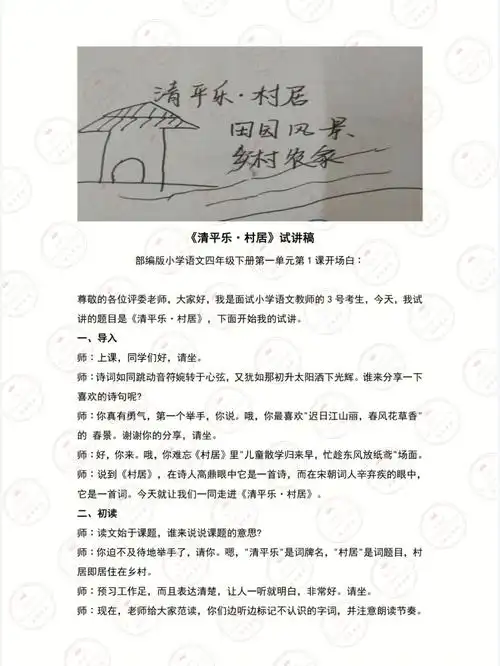 清平乐·村居
田园风景
乡村农家
《清平乐·村居》试讲稿
部编版小学语文四年级下册第一单元第1课开场白：
尊敬的各位评委老师，大家好，我是面试小学语文教师的3号考生，今天，我试
讲的题目是《清平乐·村居》，下面开始我的试讲。
一、导入
师：上课，同学们好，请坐。
师：诗词如同跳动音符婉转于心弦，又犹如那初升太阳洒下光辉。谁来分享一下
喜欢的诗句呢？
师：你真有勇气，第一个举手，你说。哦，你最喜欢"迟日江山丽，春风花草香"
的 春景。谢谢你的分享，请坐。
师：好，你来。哦，你难忘《村居》里"儿童散学归来早，忙趁东风放纸鸢"场面。
师：说到《村居》，在诗人高鼎眼中它是一首诗，而在宋朝词人辛弃疾的眼中，
它是一首词。今天就让我们一同走进《清平乐·村居》。
二、初读
师：读文始于课题，谁来说说课题的意思？
师：你迫不及待地举手了，请你。嗯，"清平乐"是词牌名，"村居"是词题目，村
居即居住在乡村。
师：预习工作足，而且表达清楚，让人一听就明白，非常好。请坐。
师：现在，老师给大家范读，你们边听边标记不认识的字词，并注意朗读节奏。